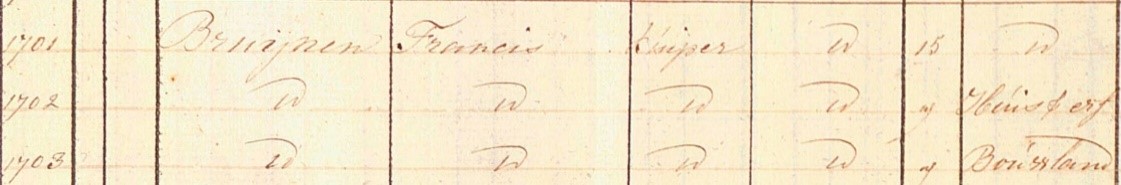 1701 Bruijnen Francis Kuiper id 15 id
1702 id id id id " Huis & erf
1703 id id id id " Bouwland